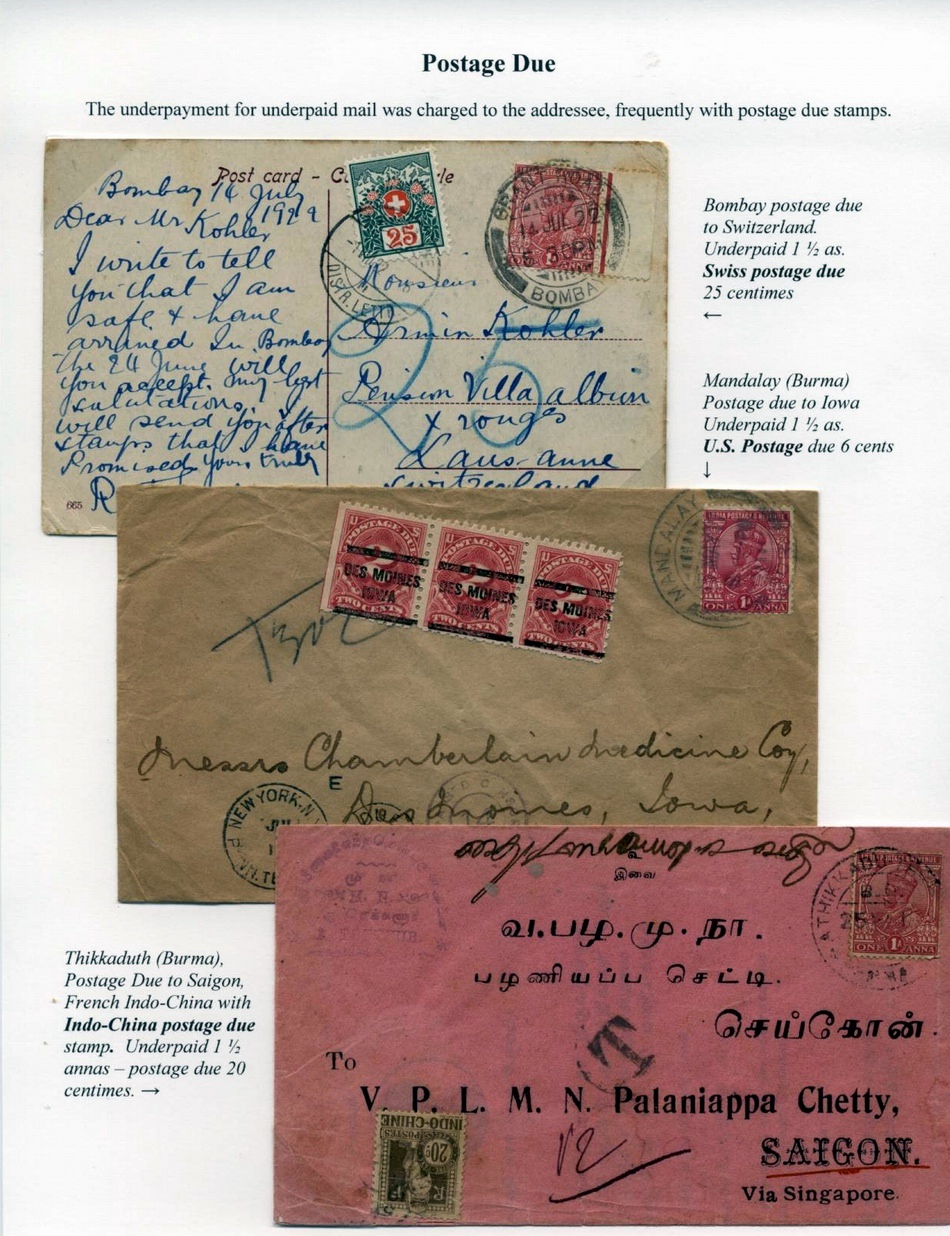 Postage Due
The underpayment for underpaid mail was charged to the addressee, frequently with postage due stamps.
Post card -
Bombay 14 July
1922
Dear Mr Kohler
I write to tell
you that I am
safe & have
arrived In Bombay
the 24 June will
you accept my best
salutations
will send you after
stamps that I have
Promised yours truly
665
25
GRANT ROAD
14 JUL 22
5.30PM
BOMBA
DISTR. LETT
25
Monsieur
Armin Kohler
Pension Villa albion
x rouges
Lausanne
Switzerland
Bombay postage due
to Switzerland.
Underpaid 1 ½ as.
Swiss postage due
25 centimes
←
Mandalay (Burma)
Postage due to Iowa
Underpaid 1 ½ as.
U.S. Postage due 6 cents
↓
U S
POSTAGE DUE
2
DES MOINES
IOWA
TWO CENTS
U S
POSTAGE DUE
2
DES MOINES
IOWA
TWO CENTS
U S
POSTAGE DUE
2
DES MOINES
IOWA
TWO CENTS
MANDALAY
INDIA POSTAGE & REVENUE
ONE 1A ANNA
Messrs Chamberlain Medicine Coy,
E
Des Moines, Iowa,
NEW YORK, N.
Thikkaduth (Burma),
Postage Due to Saigon,
French Indo-China with
Indo-China postage due
stamp. Underpaid 1 ½
annas – postage due 20
centimes. →
இவை
வ.பழ.மு.நா.
பழனியப்ப செட்டி.
செய்கோன்.
T
To
V. P. L. M. N. Palaniappa Chetty,
SAIGON.
Via Singapore.
12
ONE 1A ANNA
INDO-CHINE
POSTES
20c
R F